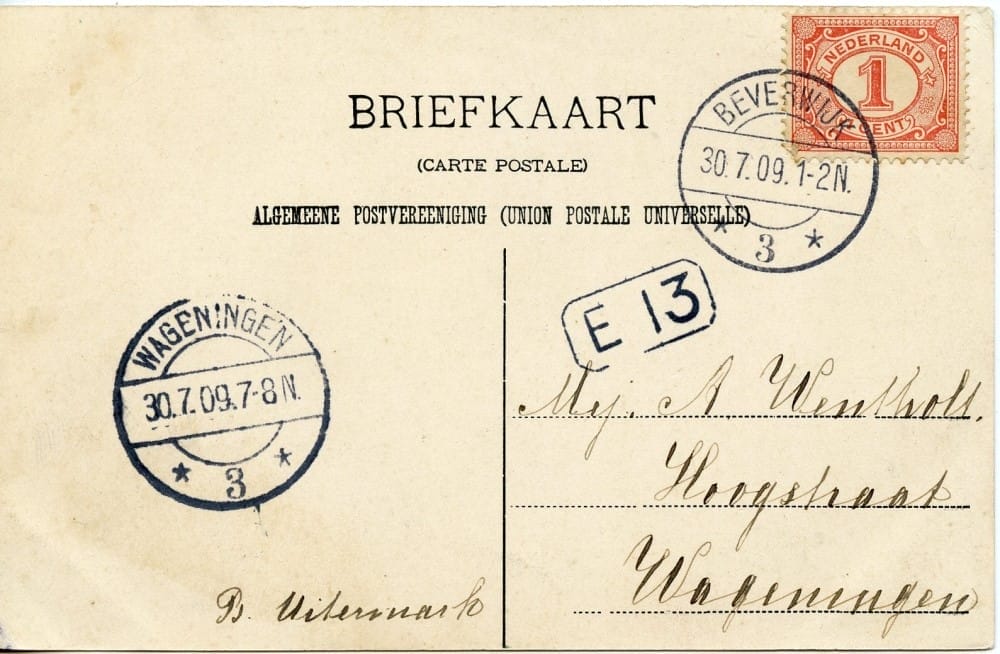 NEDERLAND
1
CENT
BRIEFKAART
(CARTE POSTALE)
ALGEMEENE POSTVEREENIGING (UNION POSTALE UNIVERSELLE)
BEVERWIJK
30.7.09.1-2N.
* 3 *
E 13
WAGENINGEN
30.7.09.7-8N.
* 3 *
Mej. A. Wentholt.
Hoogstraat
Wageningen
B. Uitermark